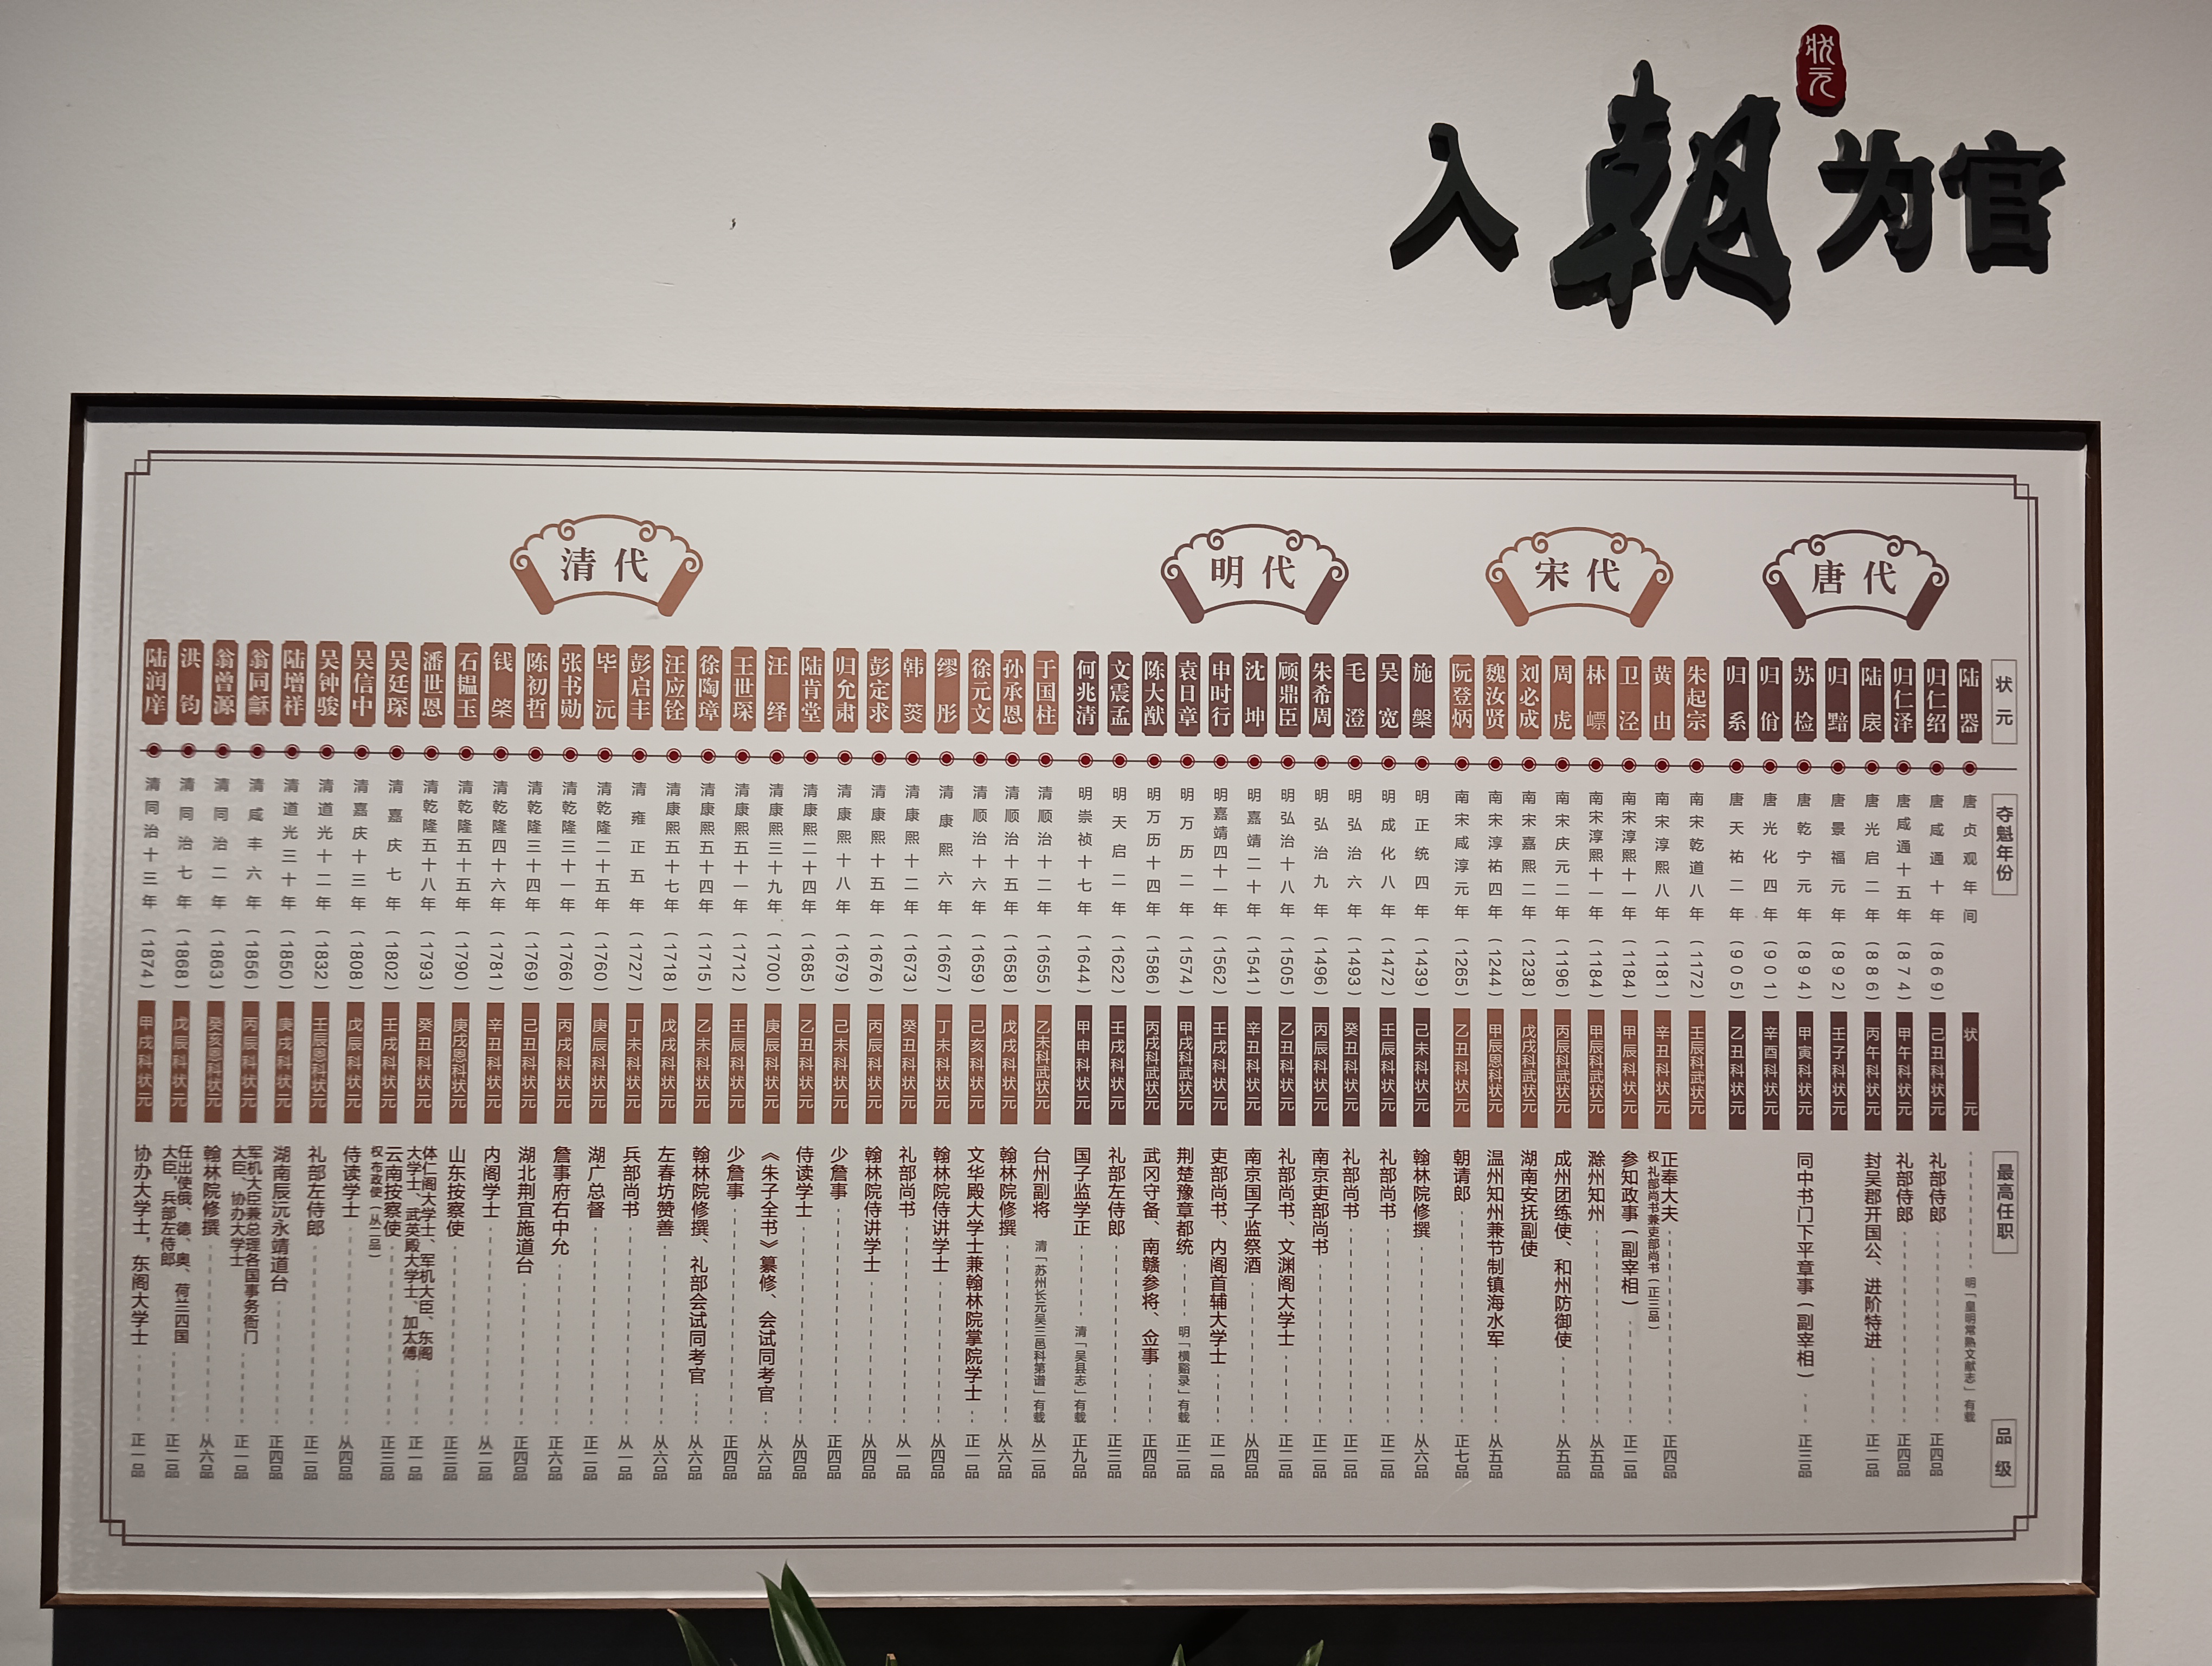 状元
入朝为官
唐代
宋代
明代
清代
状元 夺魁年份 最高任职 品级
陆器 唐贞观年间 状元 明「皇明常熟文献志」有载
归仁绍 唐咸通十年(869) 己丑科状元 礼部侍郎 正四品
归仁泽 唐咸通十五年(874) 甲午科状元 礼部侍郎 正四品
陆扆 唐光启二年(886) 丙午科状元 封吴郡开国公、进阶特进 正二品
归黯 唐景福元年(892) 壬子科状元
苏检 唐乾宁元年(894) 甲寅科状元 同中书门下平章事(副宰相) 正三品
归佾 唐光化四年(901) 辛酉科状元
归系 唐天祐二年(905) 乙丑科状元
朱起宗 南宋乾道八年(1172) 壬辰科武状元
黄由 南宋淳熙八年(1181) 辛丑科状元 正奉大夫 权礼部尚书兼吏部尚书(正三品) 正四品
卫泾 南宋淳熙十一年(1184) 甲辰科状元 参知政事(副宰相) 正二品
林嶂 南宋淳熙十一年(1184) 甲辰科武状元 滁州知州 从五品
周虎 南宋庆元二年(1196) 丙辰科武状元 成州团练使、和州防御使 从五品
刘必成 南宋嘉熙二年(1238) 戊戌科武状元 湖南安抚副使
魏汝贤 南宋淳祐四年(1244) 甲辰恩科状元 温州知州兼节制镇海水军 从五品
阮登炳 南宋咸淳元年(1265) 乙丑科状元 朝请郎 正七品
施槃 明正统四年(1439) 己未科状元 翰林院修撰 从六品
吴宽 明成化八年(1472) 壬辰科状元 礼部尚书 正二品
毛澄 明弘治六年(1493) 癸丑科状元 礼部尚书 正二品
朱希周 明弘治九年(1496) 丙辰科状元 南京吏部尚书 正二品
顾鼎臣 明弘治十八年(1505) 乙丑科状元 礼部尚书、文渊阁大学士 正二品
沈坤 明嘉靖二十年(1541) 辛丑科状元 南京国子监祭酒 从四品
申时行 明嘉靖四十一年(1562) 壬戌科状元 吏部尚书、内阁首辅大学士 正一品
袁日章 明万历二年(1574) 甲戌科武状元 荆楚豫章都统 明「横谿录」有载 正二品
陈大猷 明万历十四年(1586) 丙戌科武状元 武冈守备、南赣参将、佥事 正四品
文震孟 明天启二年(1622) 壬戌科状元 礼部左侍郎 正三品
何兆清 明崇祯十七年(1644) 甲申科状元 国子监学正 清「吴县志」有载 正九品
于国柱 清顺治十二年(1655) 乙未科武状元 台州副将 清「苏州长元吴三邑科第谱」有载 从二品
孙承恩 清顺治十五年(1658) 戊戌科状元 翰林院修撰 从六品
徐元文 清顺治十六年(1659) 己亥科状元 文华殿大学士兼翰林院掌院学士 正一品
缪彤 清康熙六年(1667) 丁未科状元 翰林院侍讲学士 从四品
韩菼 清康熙十二年(1673) 癸丑科状元 礼部尚书 从一品
彭定求 清康熙十五年(1676) 丙辰科状元 翰林院侍讲学士 从四品
归允肃 清康熙十八年(1679) 己未科状元 少詹事 正四品
陆肯堂 清康熙二十四年(1685) 乙丑科状元 侍读学士 从四品
汪绎 清康熙三十九年(1700) 庚辰科状元 《朱子全书》纂修、会试同考官 从六品
王世琛 清康熙五十一年(1712) 壬辰科状元 少詹事 正四品
徐陶璋 清康熙五十四年(1715) 乙未科状元 翰林院修撰、礼部会试同考官 从六品
汪应铨 清康熙五十七年(1718) 戊戌科状元 左春坊赞善 从六品
彭启丰 清雍正五年(1727) 丁未科状元 兵部尚书 从一品
毕沅 清乾隆二十五年(1760) 庚辰科状元 湖广总督 正二品
张书勋 清乾隆三十一年(1766) 丙戌科状元 詹事府右中允 正六品
陈初哲 清乾隆三十四年(1769) 己丑科状元 湖北荆宜施道台 正四品
钱棨 清乾隆四十六年(1781) 辛丑科状元 内阁学士 从二品
石韫玉 清乾隆五十五年(1790) 庚戌恩科状元 山东按察使 正三品
潘世恩 清乾隆五十八年(1793) 癸丑科状元 体仁阁大学士、军机大臣、东阁大学士、武英殿大学士、加太傅 正一品
吴廷琛 清嘉庆七年(1802) 壬戌科状元 云南按察使 权布政使(从二品) 正三品
吴信中 清嘉庆十三年(1808) 戊辰科状元 侍读学士 从四品
吴钟骏 清道光十二年(1832) 壬辰恩科状元 礼部左侍郎 正二品
陆增祥 清道光三十年(1850) 庚戌科状元 湖南辰沅永靖道台 正四品
翁同龢 清咸丰六年(1856) 丙辰科状元 军机大臣兼总理各国事务衙门大臣、协办大学士 正一品
翁曾源 清同治二年(1863) 癸亥恩科状元 翰林院修撰 从六品
洪钧 清同治七年(1868) 戊辰科状元 任出使俄、德、奥、荷兰四国大臣，兵部左侍郎 正二品
陆润庠 清同治十三年(1874) 甲戌科状元 协办大学士，东阁大学士 正一品